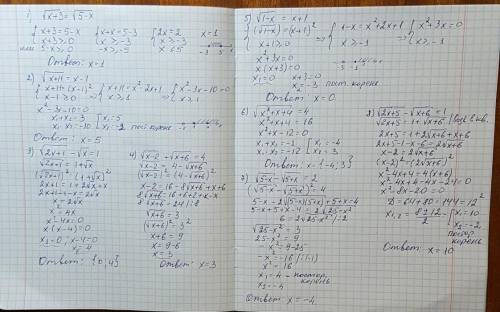 1) √x+3 = √5-x
{ x+3 = 5-x { x+x = 5-3 { 2x = 2 x = 1
x+3 ≥ 0 x ≥ -3 x ≥ -3
или 5-x ≥ 0 -x ≥ -5 x ≤ 5 -3 5
Ответ: x = 1
2) √x+11 = x-1
{ x+11 = (x-1)² { x+11 = x² - 2x+1 { x² - 3x - 10 = 0
x-1 ≥ 0 x ≥ 1 x ≥ 1
x² - 3x - 10 = 0
x₁+x₂ = 3 x₁ = 5
x₁·x₂ = -10 x₂ = -2 посторон. корень
Ответ: x = 5
3) √2x+1 - √x = 1
√2x+1 = 1+√x
2x+1 = 1+2√x+x
2x+1-1-x = 2√x
x = 2√x
x² = 4x
x² - 4x = 0
x(x-4) = 0
x₁ = 0 x-4 = 0
x₂ = 4
Ответ: {0; 4}
4) √x-2 + √x+6 = 4
√x-2 = 4 - √x+6
(√x-2)² = (4-√x+6)²
x-2 = 16 - 8√x+6 + x+6
8√x+6 = 24 |:8
√x+6 = 3
(√x+6)² = 3²
x+6 = 9
x = 9-6
x = 3
Ответ: x = 3
5) √1-x = x+1
{ (√1-x) = (x+1)² => { 1-x = x² + 2x+1 => { x² + 3x = 0
x+1 ≥ 0 x ≥ -1 x ≥ -1
x² + 3x = 0
x(x+3) = 0
x₁ = 0 x+3 = 0
x₂ = -3 пост. корень
Ответ: x = 0
6) √x²+x+4 = 4
x²+x+4 = 16
x²+x-12 = 0
x₁+x₂ = -1 x₁ = -4
x₁·x₂ = -12 x₂ = 3
Ответ: {-4; 3}
7) √5-x - √5+x = 2
(√5-x - √5+x)² = 4
5-x - 2√(5-x)(5+x) + 5+x = 4
6 = 2√25-x² |:2
√25-x² = 3
25-x² = 9
-x² = 9-25
-x² = -16 |·(-1)
x² = 16
x₁ = 4 - постор. корень
x₂ = -4
Ответ: x = -4
8) √2x+5 - √x+6 = 1
√2x+5 = 1+√x+6
2x+5 = 1+2√x+6+x+6
x-2 = 2√x+6
(x-2)² = (2√x+6)²
x² - 4x+4 = 4(x+6)
x² - 4x+4-4x-24 = 0
x² - 8x - 20 = 0
D = 64+80 = 144 = 12²
x₁,₂ = 8±12/2 x₁ = 10
x₂ = -2 постор. корень
Ответ: x = 10